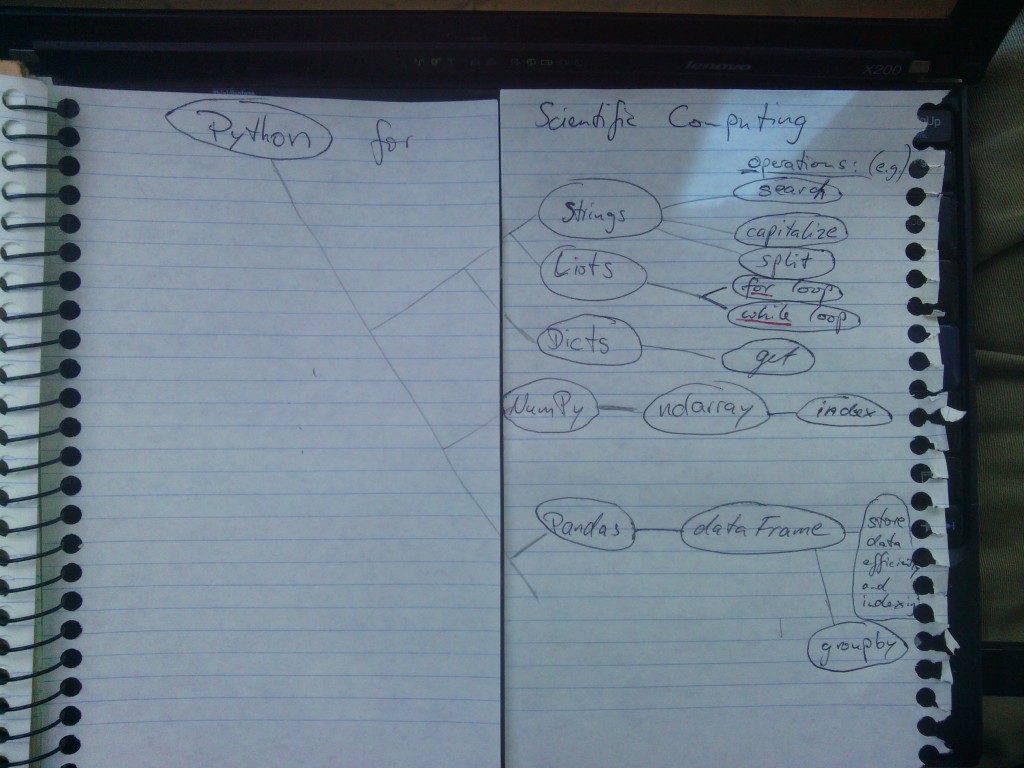 lenovo X200
Python for Scientific Computing
Up
operations: (e.g)
search
Strings
capitalize
split
Lists
for loop
while loop
Dicts
get
NumPy ndarray index
Pandas dataFrame
store
data
and
groupby